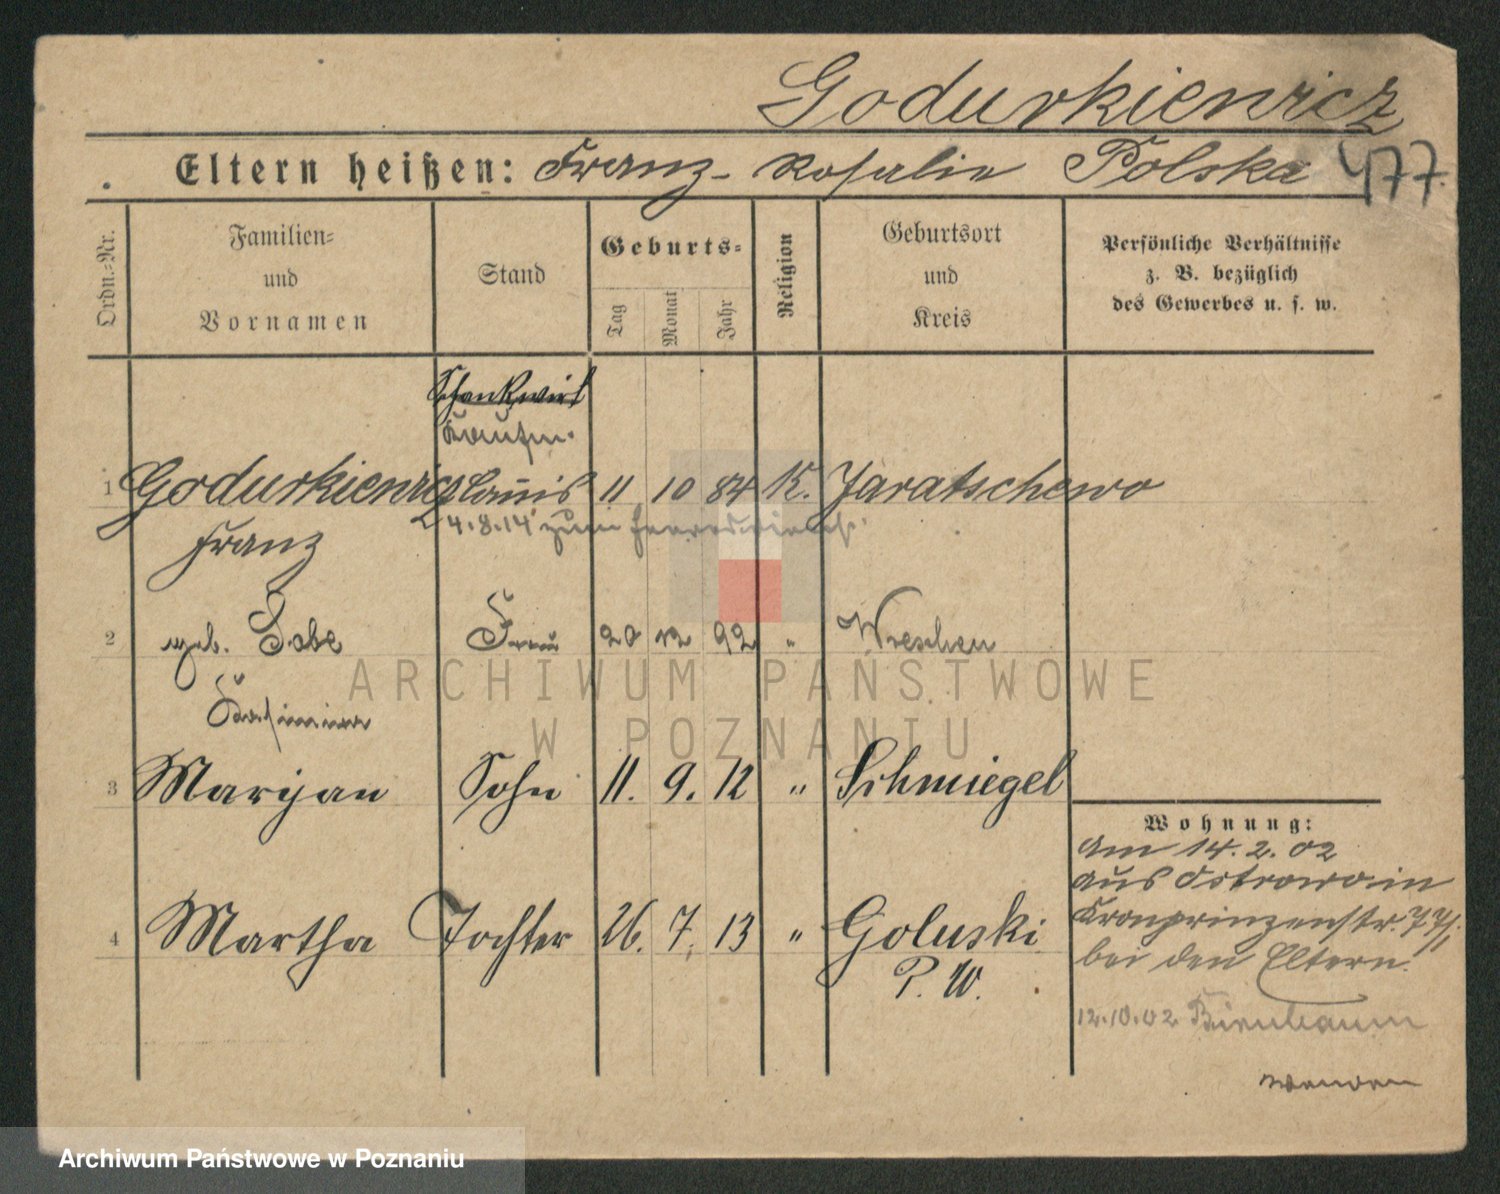 Godurkiewicz
Eltern heißen: Franz - Rosalie Polska 477.
Ordn.=Nr.
Familien=
und
Vornamen
Stand
Geburts=
Tag
Monat
Jahr
Religion
Geburtsort
und
Kreis
Persönliche Verhältnisse
z. B. bezüglich
des Gewerbes u. s. w.
Schankwirt
Kaufm.
1 Godurkiewicz 11 10 84 K. Jaratschewo
Franz
4.8.14 zum
2 geb. Frau 20 12 92 " Wreschen
3 Maryan Sohn 11. 9. 12 " Schmiegel
4 Martha Tochter 26. 7. 13 " Goluski
P. W.
Wohnung:
Am 14. 2. 02
aus Ostrowo in
Kronprinzenstr.
bei den Eltern.
12.10.02 Birnbaum
wenden
ARCHIWUM PAŃSTWOWE
W POZNANIU
Archiwum Państwowe w Poznaniu